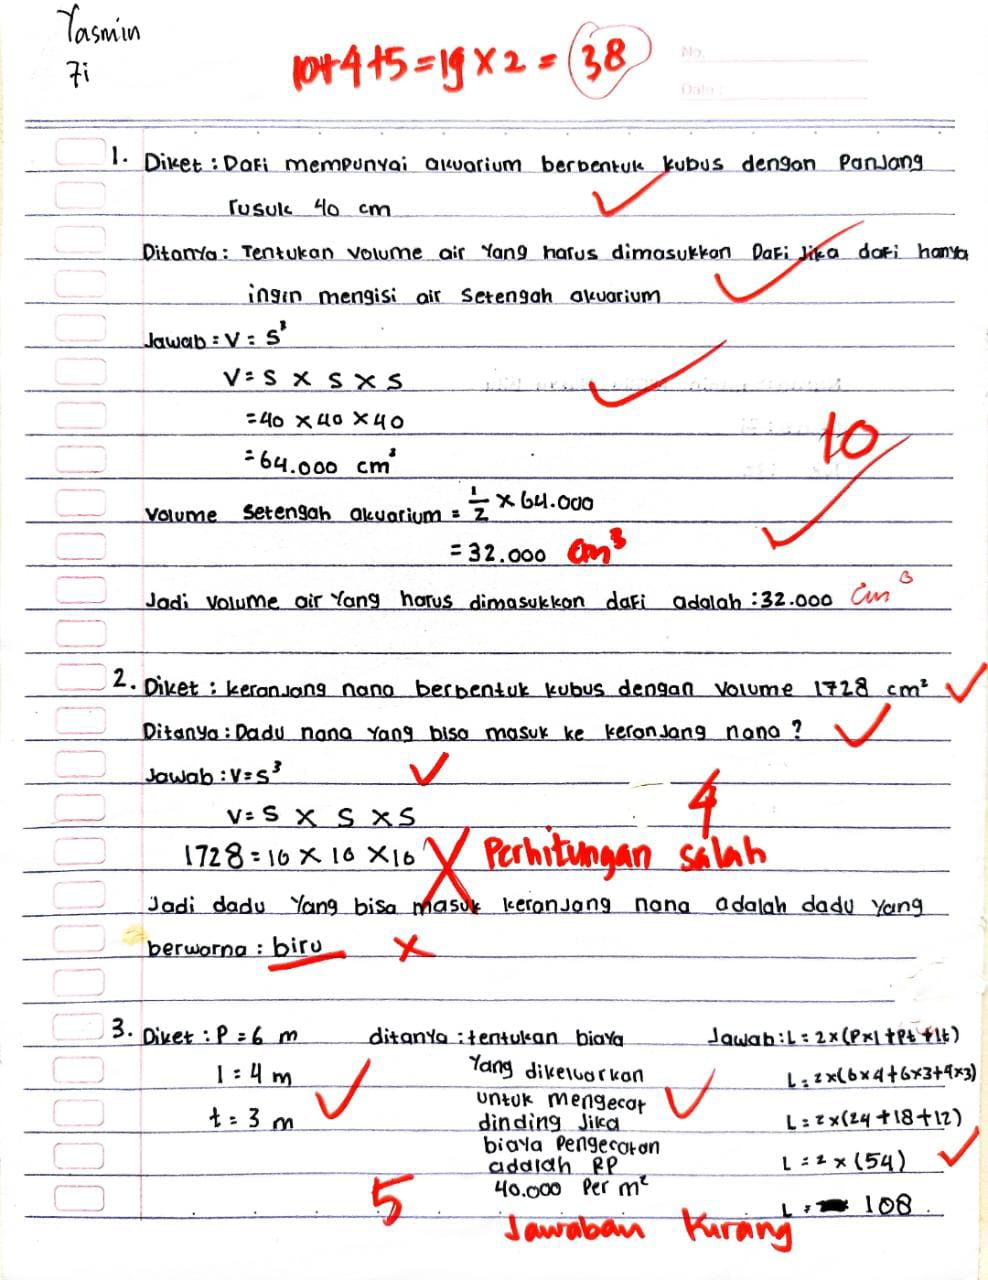 Yasmin
7i
10+4+5=19 x 2 = 38
No.
Date:
1. Diket : Dafi mempunyai akuarium berbentuk kubus dengan Panjang
rusuk 40 cm
Ditanya : Tentukan volume air Yang harus dimasukkan Dafi Jika dafi hanya
ingin mengisi air Setengah akuarium
Jawab = V = S³
V = S X S X S
= 40 X 40 X 40
= 64.000 cm³
Volume Setengah akuarium = 1/2 X 64.000
= 32.000 cm³
10
Jadi volume air Yang harus dimasukkan dafi adalah : 32.000 cm³
2. Diket : keranjang nana berbentuk kubus dengan volume 1728 cm²
Ditanya : Dadu nana Yang bisa masuk ke keranjang nana ?
Jawab : V = S³
V = S X S X S
4
1728 = 16 X 16 X 16 Perhitungan salah
Jadi dadu Yang bisa masuk keranjang nana adalah dadu Yang
berwarna : biru
3. Diket : P = 6 m
l = 4 m
t = 3 m
ditanya : tentukan biaya
Yang dikeluarkan
untuk mengecat
dinding Jika
biaya Pengecatan
adalah RP
40.000 Per m²
Jawab : L = 2 x (Pxl + Pt + lt)
L = 2 x (6 x 4 + 6 x 3 + 4 x 3)
L = 2 x (24 + 18 + 12)
L = 2 x (54)
L = 108
5
Jawaban Kurang